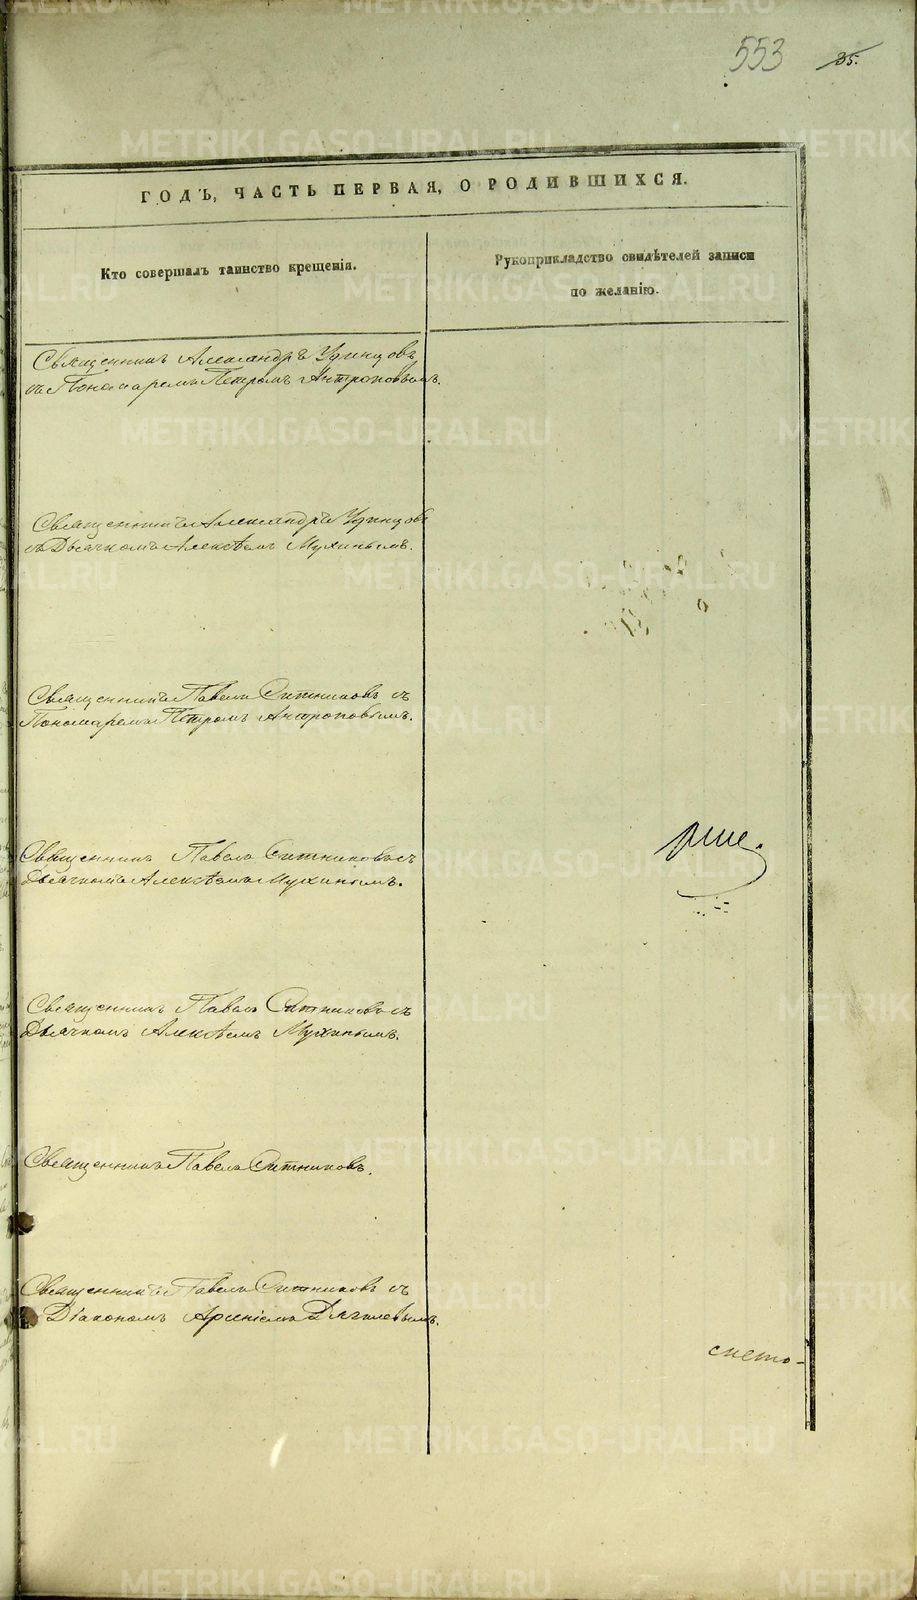 553 35.
ГОДЪ, ЧАСТЬ ПЕРВАЯ, О РОДИВШИХСЯ.
Кто совершалъ таинство крещенія.
Рукоприкладство свидѣтелей записи
по желанію.
Священникъ Александръ Удинцовъ
съ Пономаремъ Петромъ Антроповымъ.
Священникъ Александръ Удинцовъ
съ Дьячкомъ Алексѣемъ Мухинымъ.
Священникъ Павелъ Ситниковъ съ
Пономаремъ Петромъ Антроповымъ.
Священникъ Павелъ Ситниковъ съ
Дьячкомъ Алексѣемъ Мухинымъ.
Священникъ Павелъ Ситниковъ съ
Дьячкомъ Алексѣемъ Мухинымъ.
Священникъ Павелъ Ситниковъ.
Священникъ Павелъ Ситниковъ съ
Діакономъ Арсеніемъ Дягилевымъ.
METRIKI.GASO-URAL.RU